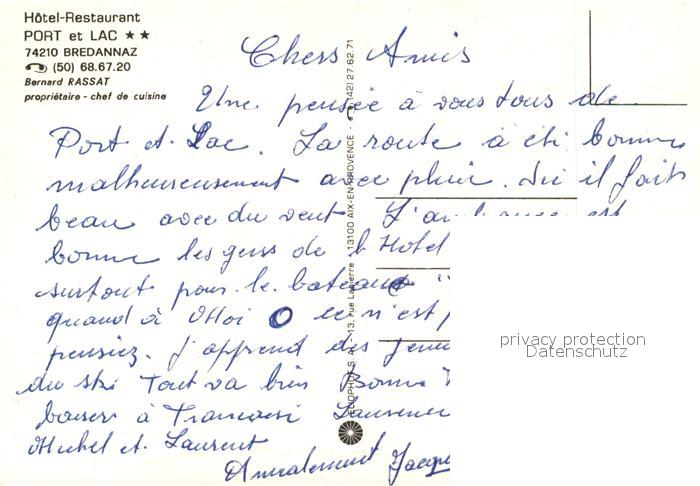 Hôtel-Restaurant
PORT et LAC ★★
74210 BREDANNAZ
(50) 68.67.20
Bernard RASSAT
propriétaire - chef de cuisine
Chers Amis
Une pensée à vous tous de
Port et Lac. La route à été bonne
malheureusement avec pluie. Ici il fait
beau avec du vent L'ambiance est
bonne les gens de l Hotel
surtout pour le bateau
quand à Moi O ce n'est
pensiez. J'apprend des
du ski Tout va bien Bonne
baisers à Francoise Laurence
Michel et Laurent
Amicalement Jacque
HELIOPHOT S.A. - 13, rue Lapierre - 13100 AIX-EN-PROVENCE (42) 27.62.71
privacy protection
Datenschutz